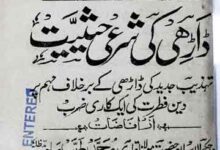 ڈاڑھی کی شرعی حیثیت
تہذیب جدید کی ڈاڑھی کے برخلاف مہم پر
دین فطرت کی ایک کاری ضرب
از افاضات
ENTERED